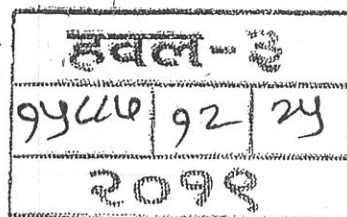 हवल - ३
१५८८७ | १२ | २५
२०१९